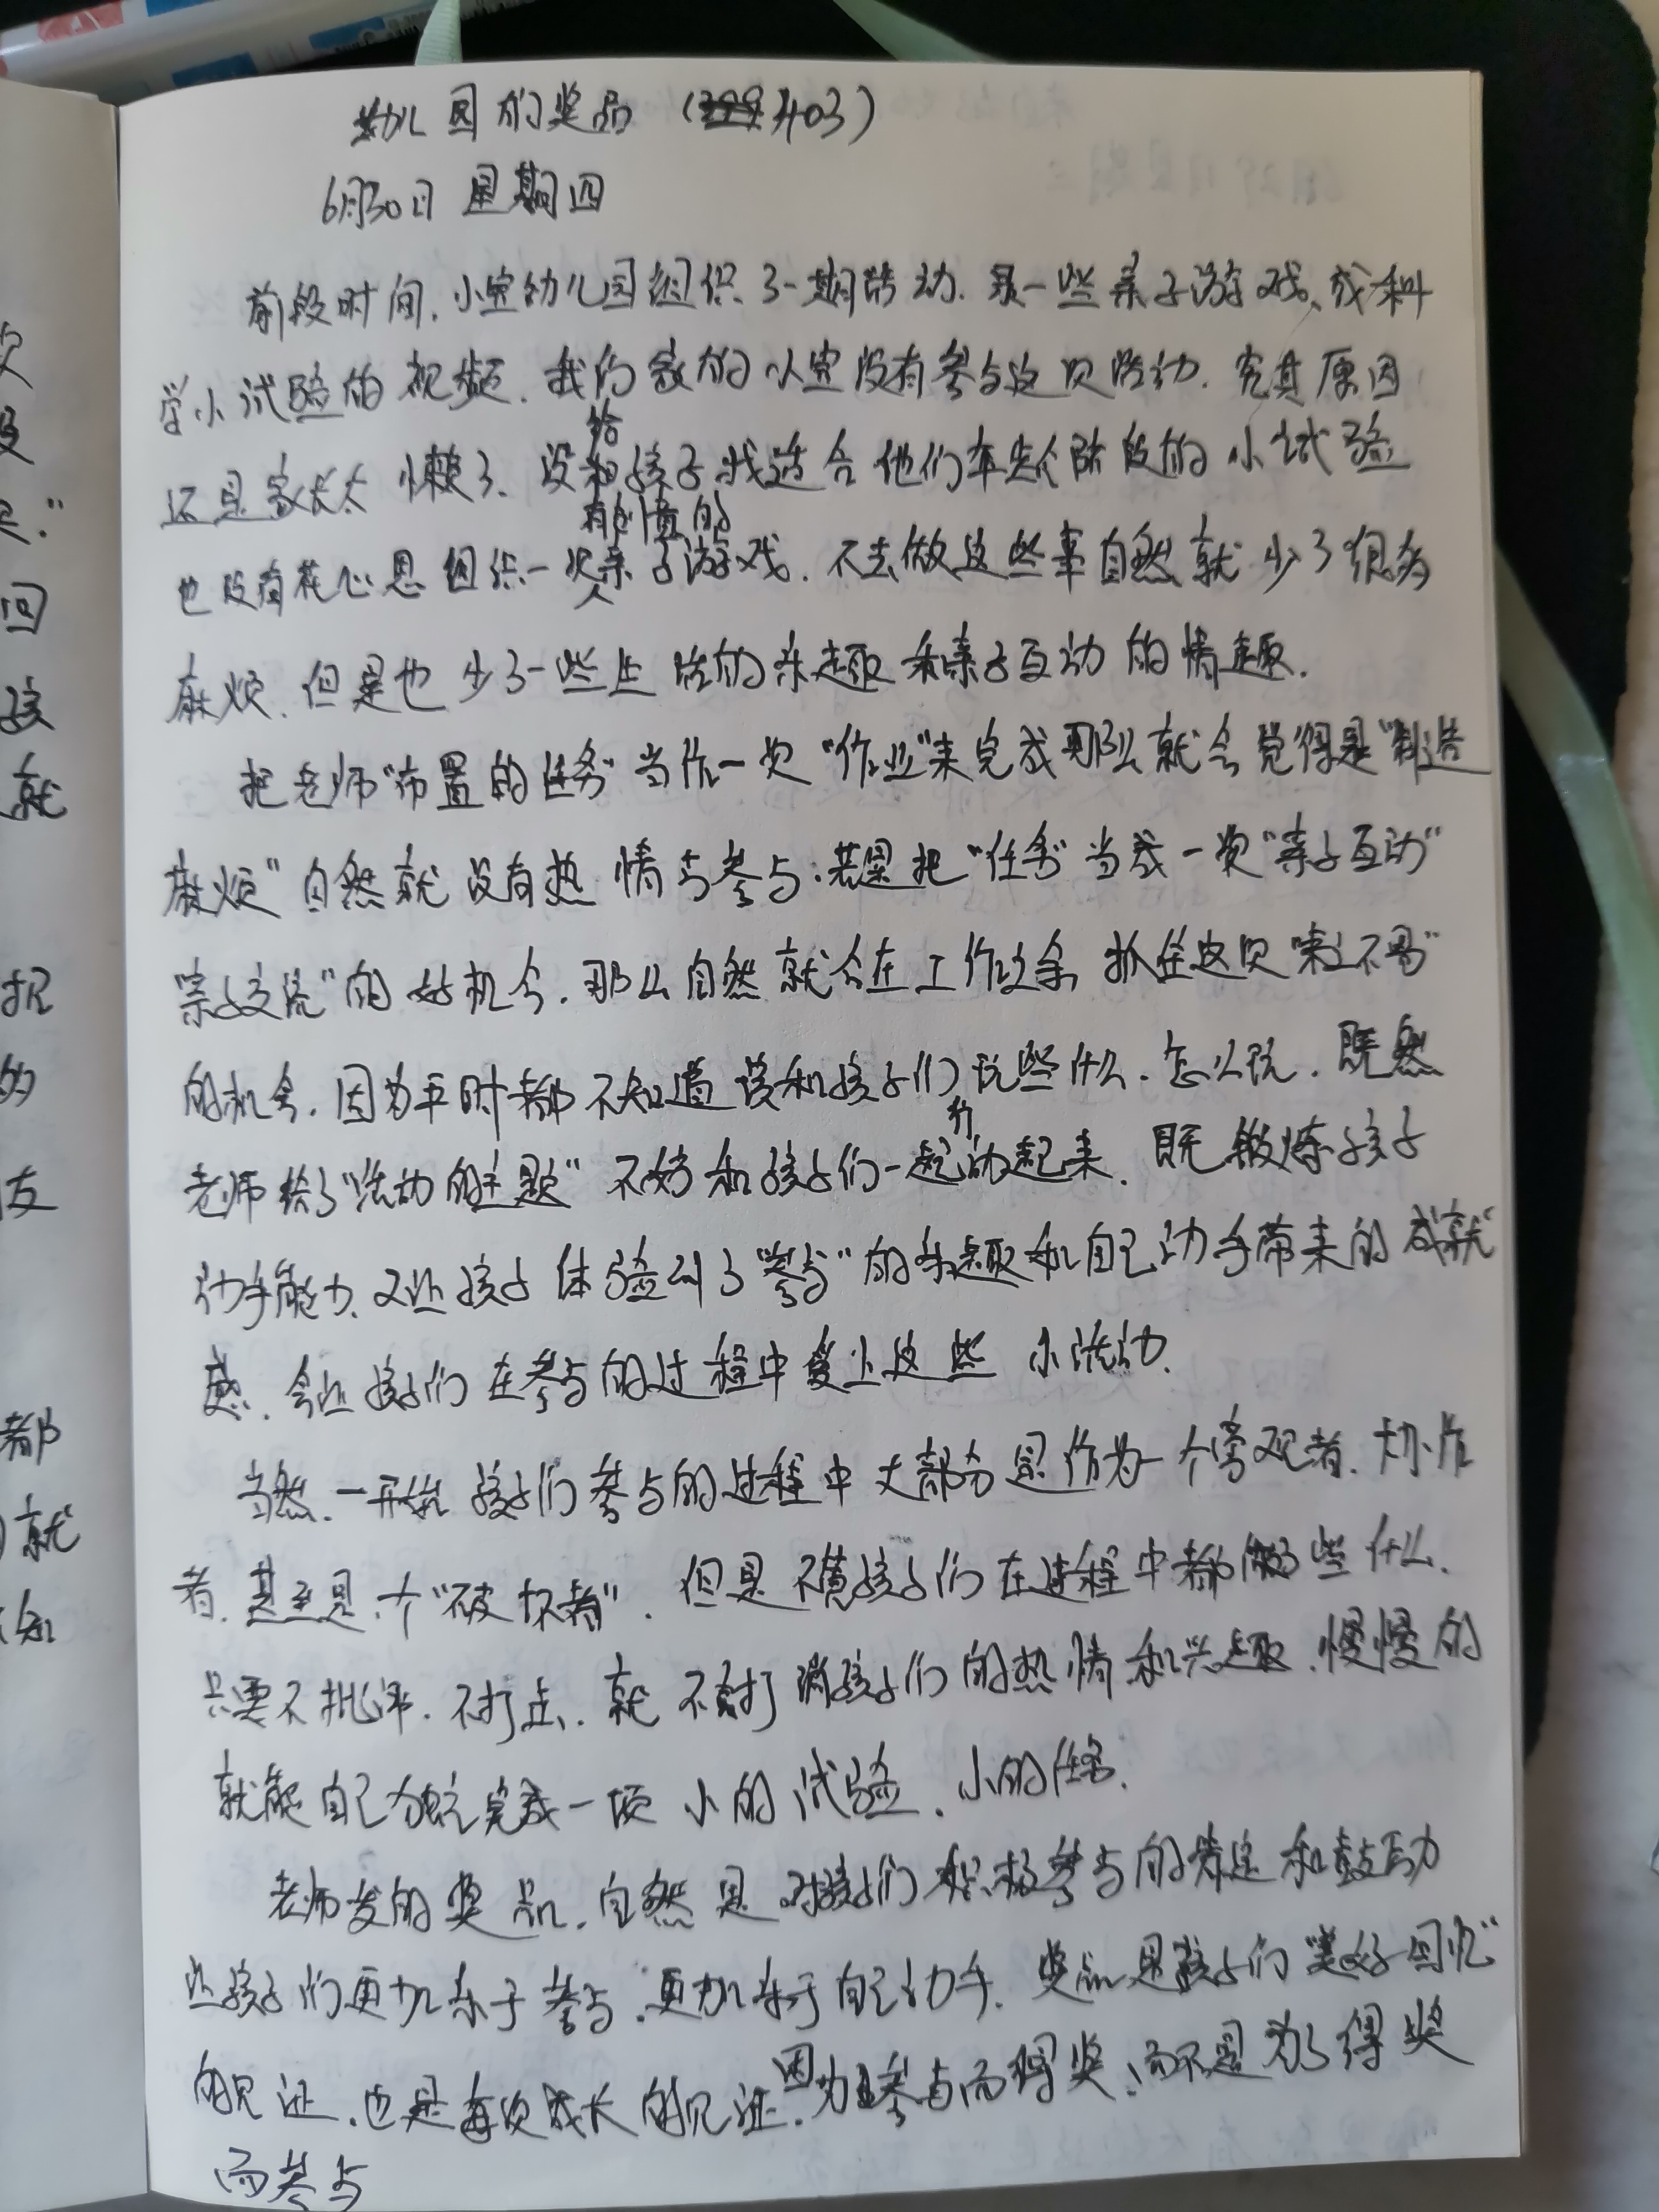 幼儿园的奖品 (403)
6月30日 星期四
前段时间.小宝幼儿园组织了一期活动.录一些亲子游戏、或科
学小试验的视频.我们家的小宝没有参与这次活动.究其原因
还是家长太懒了、没给孩子找适合他们年龄阶段的小试验
也没有花心思组织一次有创意的亲子游戏.不去做这些事自然就少了很多
麻烦.但是也少了一些生活的乐趣和亲子互动的情趣.
把老师"布置的任务"当作一次"作业"来完成那么就会觉得是"制造
麻烦"自然就没有热情去参与.若是把"任务"当成一次"亲子互动"
"亲子交流"的好机会.那么自然就会在工作之余抓住这次"来之不易"
的机会.因为平时都不知道该和孩子们玩些什么.怎么玩.既然
老师给了"活动的主题"不妨和孩子们一起行动起来.既锻炼孩子
动手能力.又让孩子体验到了"参与"的乐趣和自己动手带来的成就
感.会让孩子们在参与的过程中爱上这些小活动.
当然.一开始孩子们参与的过程中大部分是作为一个旁观者.协作
者.甚至是一个"破坏者".但是不管孩子们在过程中都做了些什么.
只要不批评.不打击.就不会打消孩子们的热情和兴趣.慢慢的
就能自己为主完成一项小的试验.小的任务.
老师发的奖品.自然是对孩子们积极参与的肯定和鼓励
让孩子们更加乐于参与.更加乐于自己动手.奖品是孩子们"美好回忆"
的见证.也是每次成长的见证.因为参与而得奖、而不是为了得奖
而参与
次
没
回
孩
就
把
的
友
都
就
知